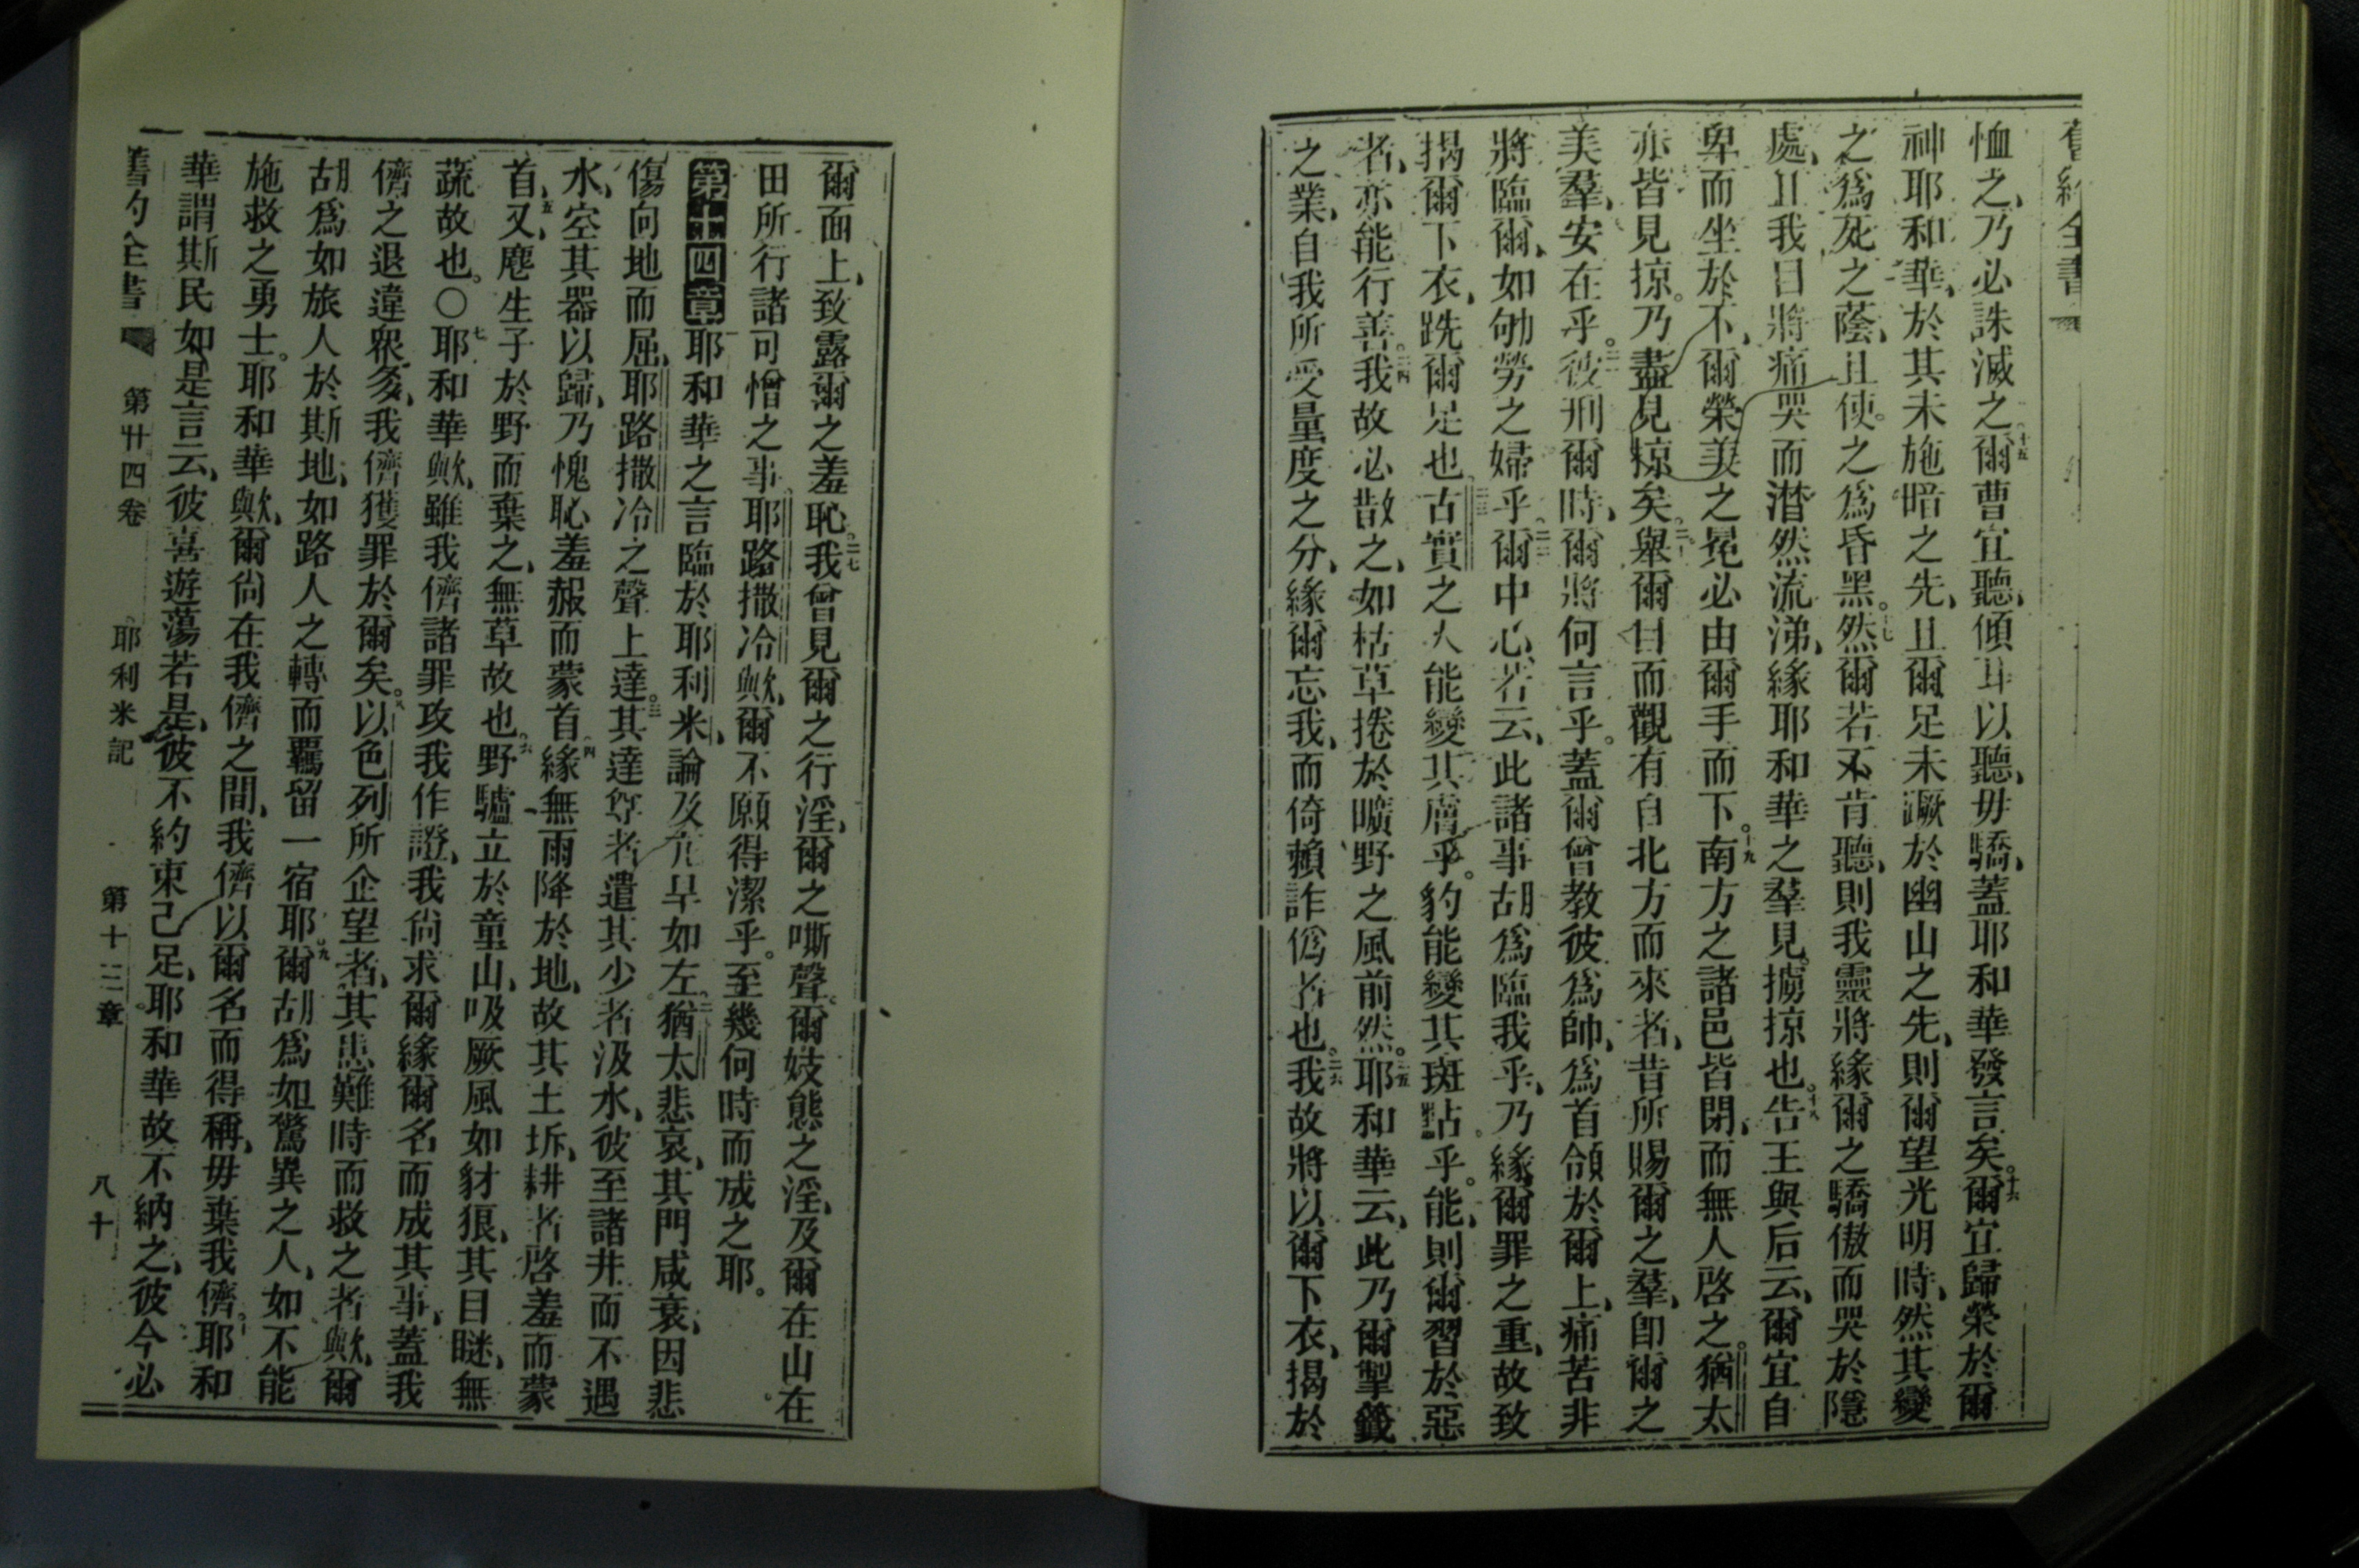 舊約全書
恤之、乃必誅滅之、十五爾曹宜聽、傾耳以聽、毋驕、蓋耶和華發言矣。十六爾宜歸榮於爾
神耶和華、於其未施暗之先、且爾足未蹶於幽山之先、則爾望光明時、然其變
之爲死之蔭、且使之爲昏黑。十七然爾若不肯聽、則我靈將緣爾之驕傲而哭於隱
處、且我目將痛哭而潸然流涕、緣耶和華之羣見擄掠也。十八告王與后云、爾宜自
卑而坐於下、爾榮美之冕必由爾手而下。十九南方之諸邑皆閉、而無人啓之。猶太
亦皆見掠。乃盡見掠矣。二十舉爾目而觀有自北方而來者、昔所賜爾之羣、卽爾之
美羣、安在乎。二一彼刑爾時、爾將何言乎。蓋爾曾教彼爲帥、爲首領於爾上、痛苦非
將臨爾、如劬勞之婦乎。二二爾中心若云、此諸事胡爲臨我乎、乃緣爾罪之重、故致
揭爾下衣、跣爾足也。二三古實之人能變其膚乎。豹能變其斑點乎。能、則爾習於惡
者、亦能行善。二四我故必散之、如枯草捲於曠野之風前然。二五耶和華云、此乃爾掣籤
之業、自我所受量度之分、緣爾忘我、而倚賴詐僞者也。二六我故將以爾下衣、揭於
爾面上、致露爾之羞恥。二七我曾見爾之行淫、爾之嘶聲。爾妓態之淫、及爾在山在
田所行諸可憎之事。耶路撒冷歟、爾不願得潔乎。至幾何時而成之耶。
第十四章一耶和華之言臨於耶利米、論及亢旱如左。二猶太悲哀、其門咸衰、因悲
傷向地而屈、耶路撒冷之聲上達。三其達尊者遣其少者汲水、彼至諸井而不遇
水、空其器以歸、乃愧恥羞赧而蒙首。四緣無雨降於地、故其土坼、耕者啓羞而蒙
首、五又、麀生子於野而棄之、無草故也。六野驢立於童山、吸厥風如豺狼、其目瞇、無
蔬故也。〇七耶和華歟、雖我儕諸罪攻我作證、我尙求爾緣爾名而成其事、蓋我
儕之退違衆多、我儕獲罪於爾矣。八以色列所企望者、其患難時而救之者歟、爾
胡爲如旅人於斯地、如路人之轉而羈留一宿耶。九爾胡爲如驚異之人、如不能
施救之勇士。耶和華歟、爾尙在我儕之間、我儕以爾名而得稱、毋棄我儕。十耶和
華謂斯民如是言云、彼喜遊蕩若是、彼不約束己足、耶和華故不納之、彼今必
舊約全書 第廿四卷 耶利米記 第十三章 八十